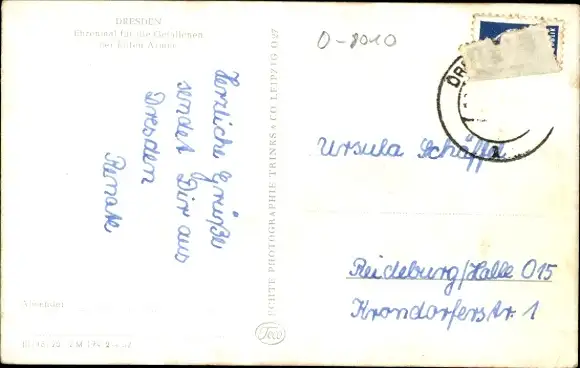 DRESDEN
Ehrenmal für die Gefallenen
der Roten Armee
O-8010
Herzliche Grüße
sendet Dir aus
Dresden
Renate
ECHTE PHOTOGRAPHIE TRINKS & CO LEIPZIG O 27
Ursula Schäffel
Reideburg/Halle O15
Krondorferstr. 1
Absender
Teco